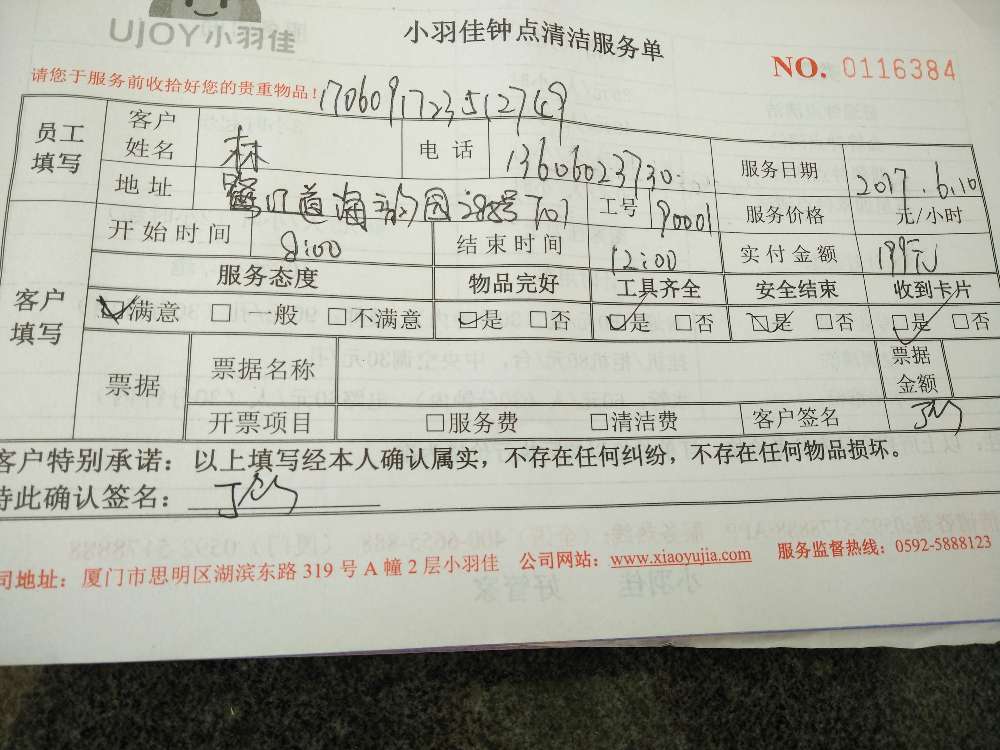 UJOY小羽佳
小羽佳钟点清洁服务单
NO. 0116384
请您于服务前收拾好您的贵重物品!
员工填写 客户姓名 林 电话 13606023730 服务日期 2017.6.10
地址 工号 90001 服务价格 元/小时
开始时间 8:00 结束时间 12:00 实付金额 199元
客户填写 服务态度 物品完好 工具齐全 安全结束 收到卡片
☑满意 □一般 □不满意 ☑是 □否 ☑是 □否 ☑是 □否 ☑是 □否
票据 票据名称 票据金额
开票项目 □服务费 □清洁费 客户签名
客户特别承诺：以上填写经本人确认属实，不存在任何纠纷，不存在任何物品损坏。
特此确认签名：
司地址：厦门市思明区湖滨东路 319 号 A 幢 2 层小羽佳 公司网站：www.xiaoyujia.com 服务监督热线：0592-5888123